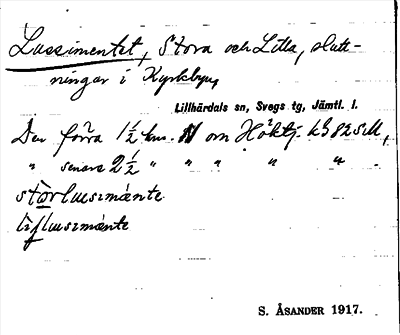 Lussimentet, Stora och Litla, slutt-
ningar i Kyrkbyn,
Lillhärdals sn, Svegs tg, Jämtl. l.
Den förra 1 1/2 km. N om Höktj. kg 82 SM,
„ senare 2 1/2 „ „ „ „ „
stōrlusimánte
lisllusimánte
S. ÅSANDER 1917.